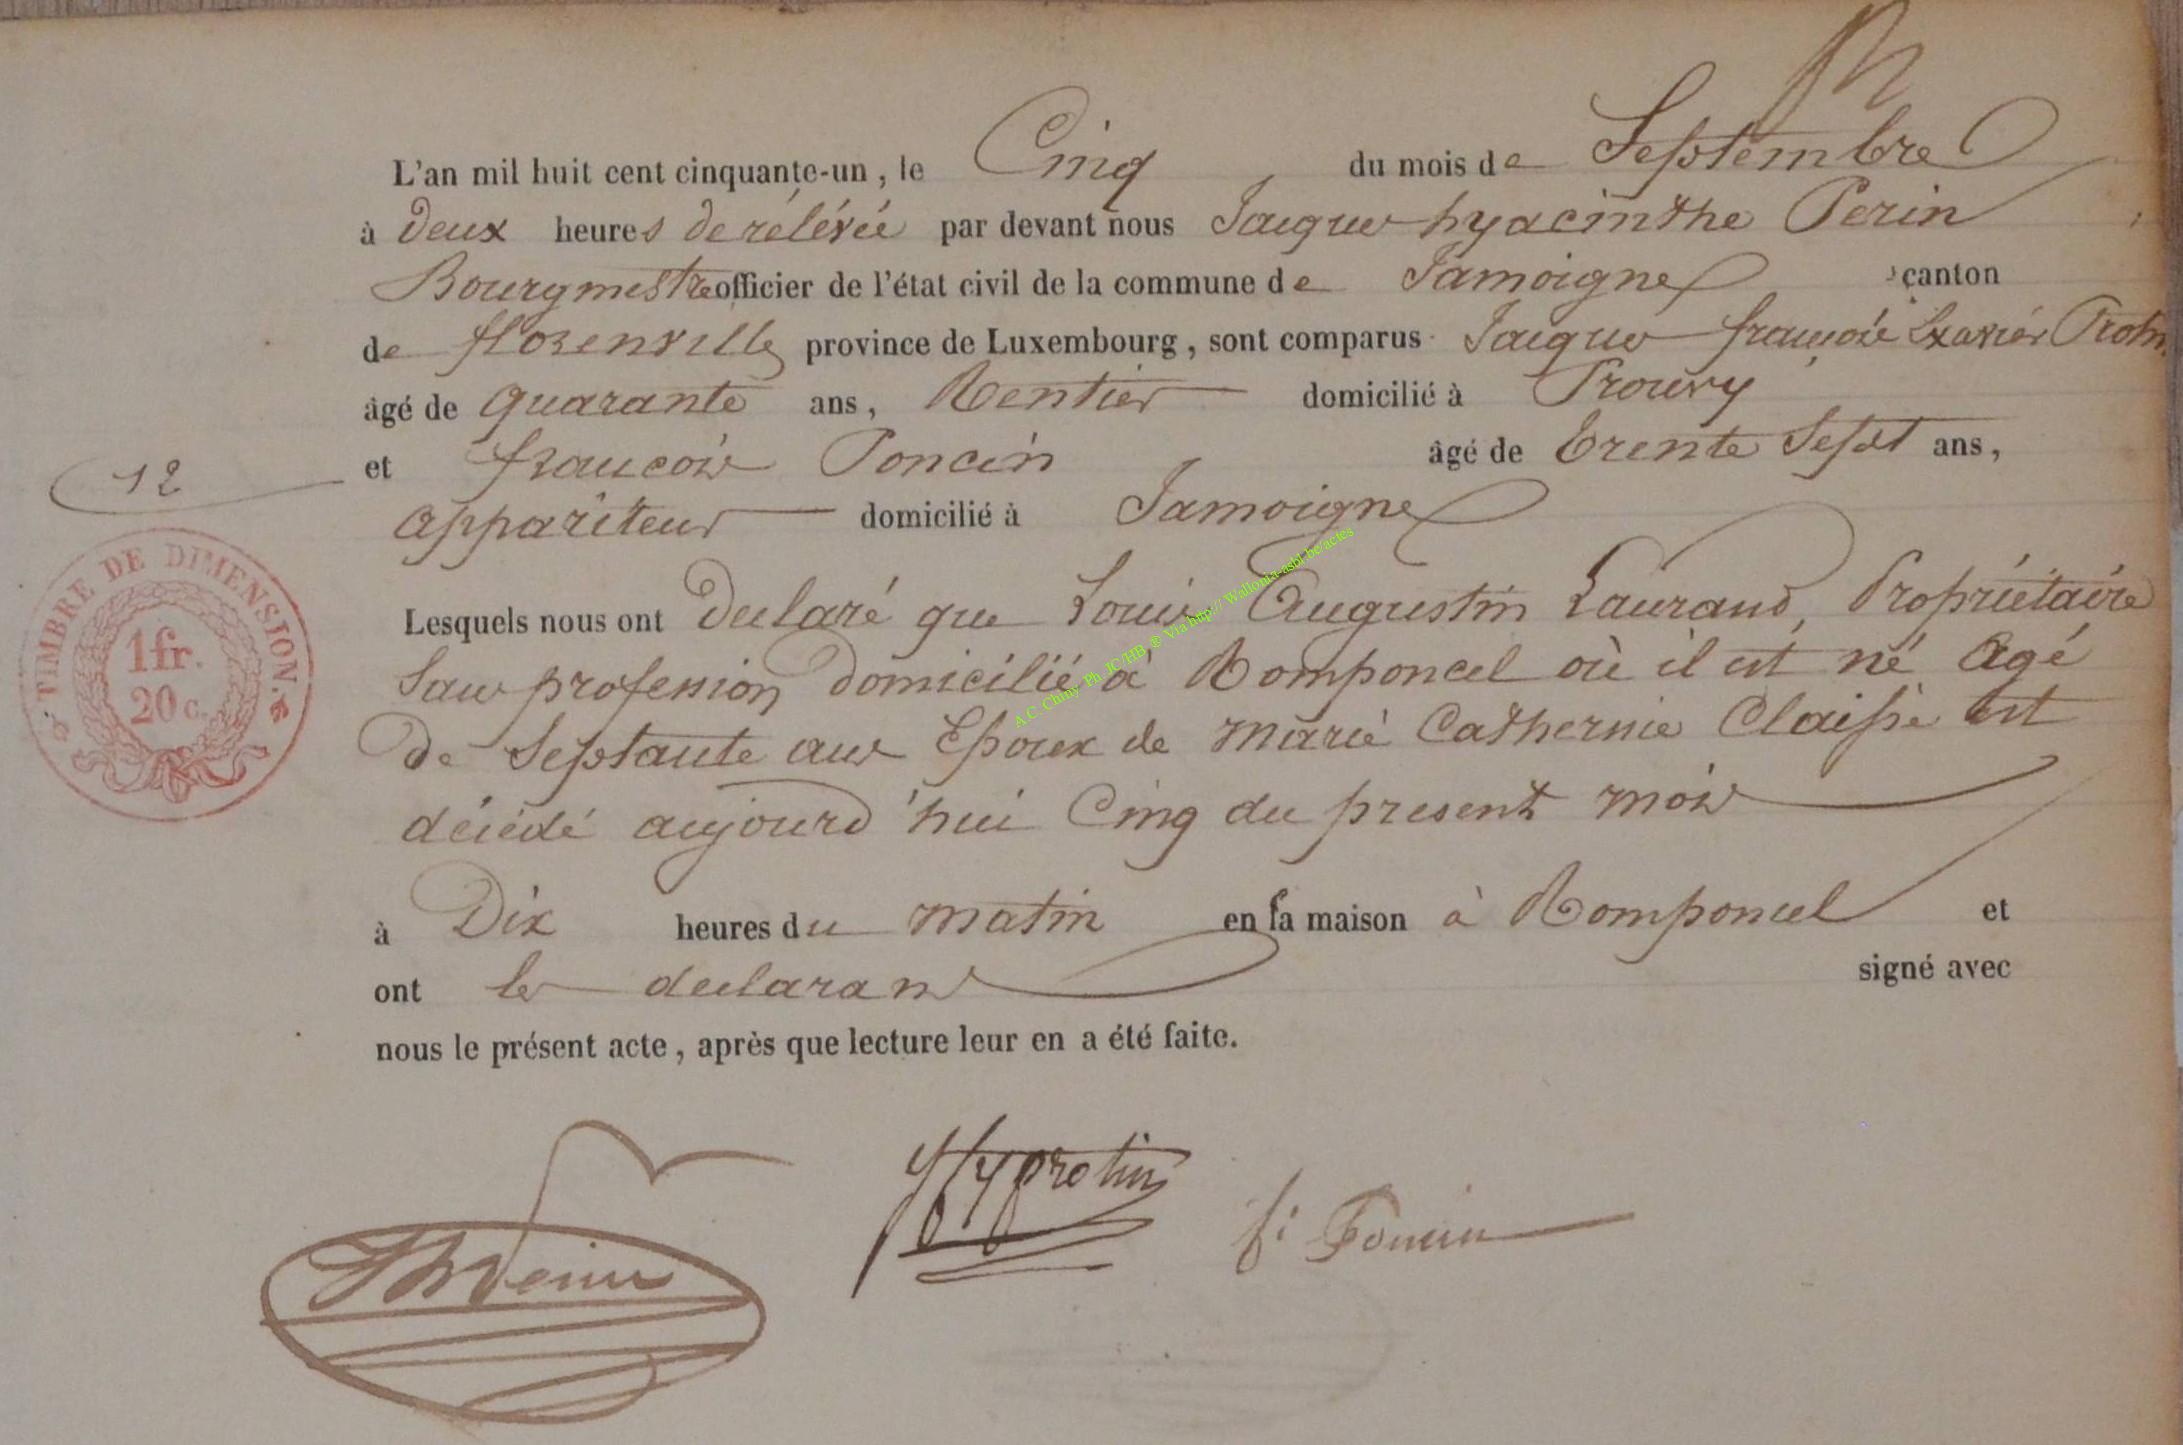 L'an mil huit cent cinquante-un, le Cinq du mois de Septembre
à deux heures de rélévée par devant nous Jacques hyacinthe Perin
Bourgmestre officier de l'état civil de la commune de Jamoigne canton
de florenville province de Luxembourg, sont comparus Jacques françois Xavier Protin
âgé de quarante ans, Rentier domicilié à Prouvy
et françois Poncin âgé de trente Sept ans,
12
appariteur domicilié à Jamoigne
Lesquels nous ont declaré que Louis Augustin Laurand, Propriétaire
Sans profession domicilié à Romponcel où il est né Agé
de Septante ans Epoux de Marie Catherine Claisse est
décédé aujourd'hui Cinq du present mois
à Dix heures du matin en sa maison à Romponcel et
ont les declarans signé avec
nous le présent acte, après que lecture leur en a été faite.
TIMBRE DE DIMENSION.
1fr.
20 c.
A.C. Chiny Ph JC/HB ® Via http:// Wallonia-asbl.be/actes
protin f: Poncin